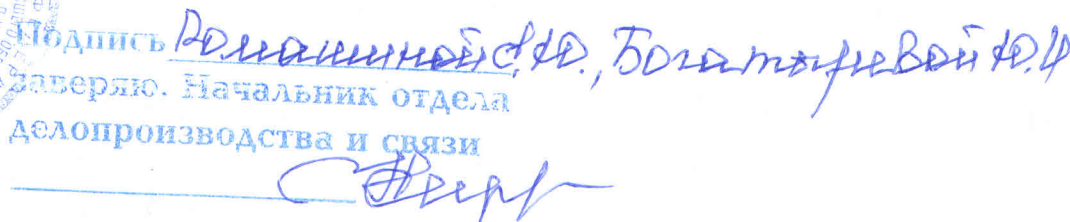 Подпись Ромашиной С.Ю., Богатыревой Ю.И
заверяю. Начальник отдела
делопроизводства и связи